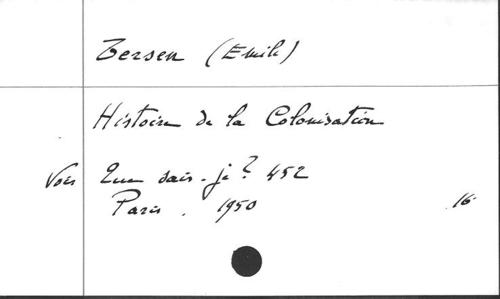 Tersen (Emile)
Histoire de la Colonisation
Voir Que sais-je? 452
Paris. 1950 16